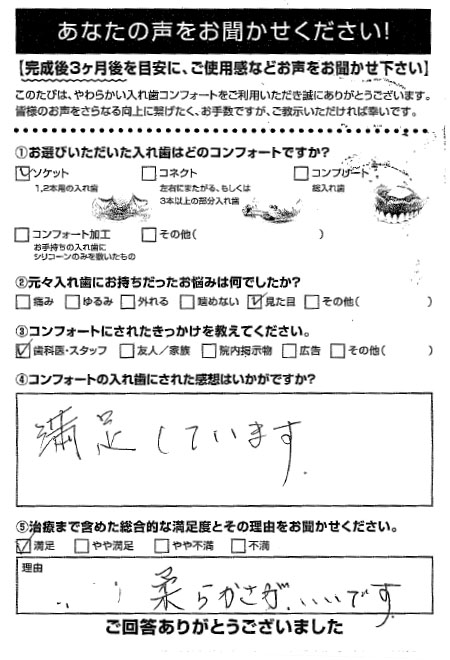 あなたの声をお聞かせください!
【完成後3ヶ月後を目安に、ご使用感などお声をお聞かせ下さい】
このたびは、やわらかい入れ歯コンフォートをご利用いただき誠にありがとうございます。
皆様のお声をさらなる向上に繋げたく、お手数ですが、ご教示いただければ幸いです。
①お選びいただいた入れ歯はどのコンフォートですか?
☑ソケット □コネクト □コンプリート
1,2本用の入れ歯 左右にまたがる、もしくは 総入れ歯
3本以上の部分入れ歯
□コンフォート加工 □その他( )
お手持ちの入れ歯に
シリコーンのみを敷いたもの
②元々入れ歯にお持ちだったお悩みは何でしたか?
□痛み □ゆるみ □外れる □噛めない ☑見た目 □その他( )
③コンフォートにされたきっかけを教えてください。
☑歯科医・スタッフ □友人/家族 □院内掲示物 □広告 □その他( )
④コンフォートの入れ歯にされた感想はいかがですか?
満足しています.
⑤治療まで含めた総合的な満足度とその理由をお聞かせください。
☑満足 □やや満足 □やや不満 □不満
理由
柔らかさが、いいです.
ご回答ありがとうございました